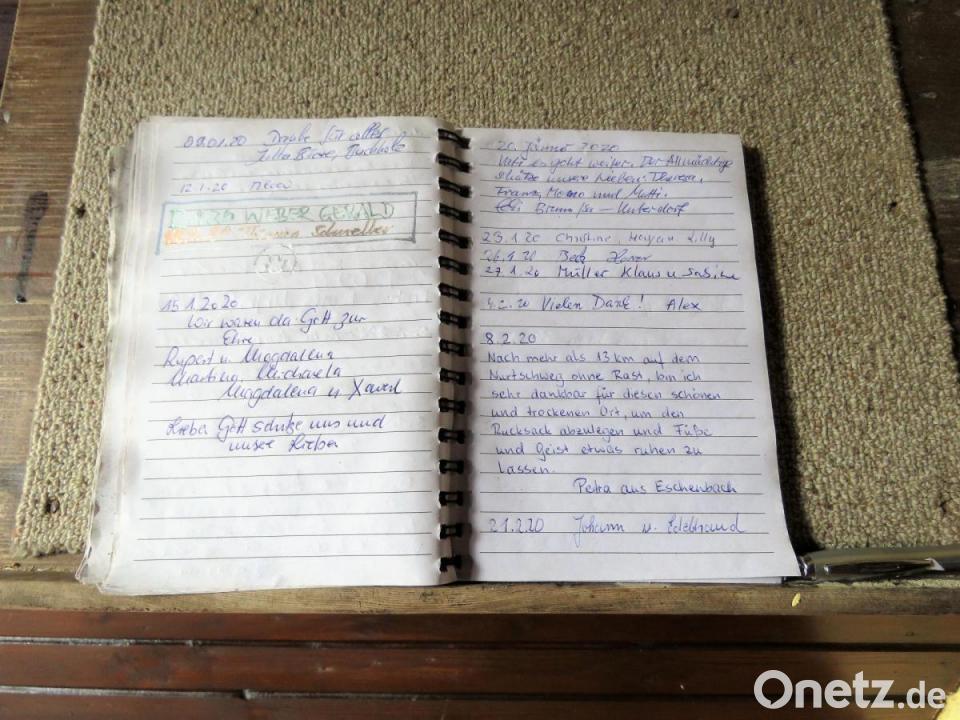 09.01.20 Danke für alles
12.1.20
WEBER GERALD
15.1.2020
Wir waren da Gott zur
Ehre
Rupert u. Magdalena
Martina, Michaela
Magdalena u. Xaverl
Lieber Gott schütze uns und
unsere Lieben
20. Jänner 2020
Vati es geht weiter. Der Allmächtige
schütze unsere Lieben: Theresa,
Franz, und Mutti.
Unterdorf
23.1.20 Christine, Lilly
26.1.20 Beck
27.1.20 Müller Klaus u Sabine
4.2.20 Vielen Dank! Alex
8.2.20
Nach mehr als 13 km auf dem
Nurtschweg ohne Rast, bin ich
sehr dankbar für diesen schönen
und trockenen Ort, um den
Rucksack abzulegen und Füße
und Geist etwas ruhen zu
lassen.
Petra aus Eschenbach
21.2.20 Johann u.
Onetz.de